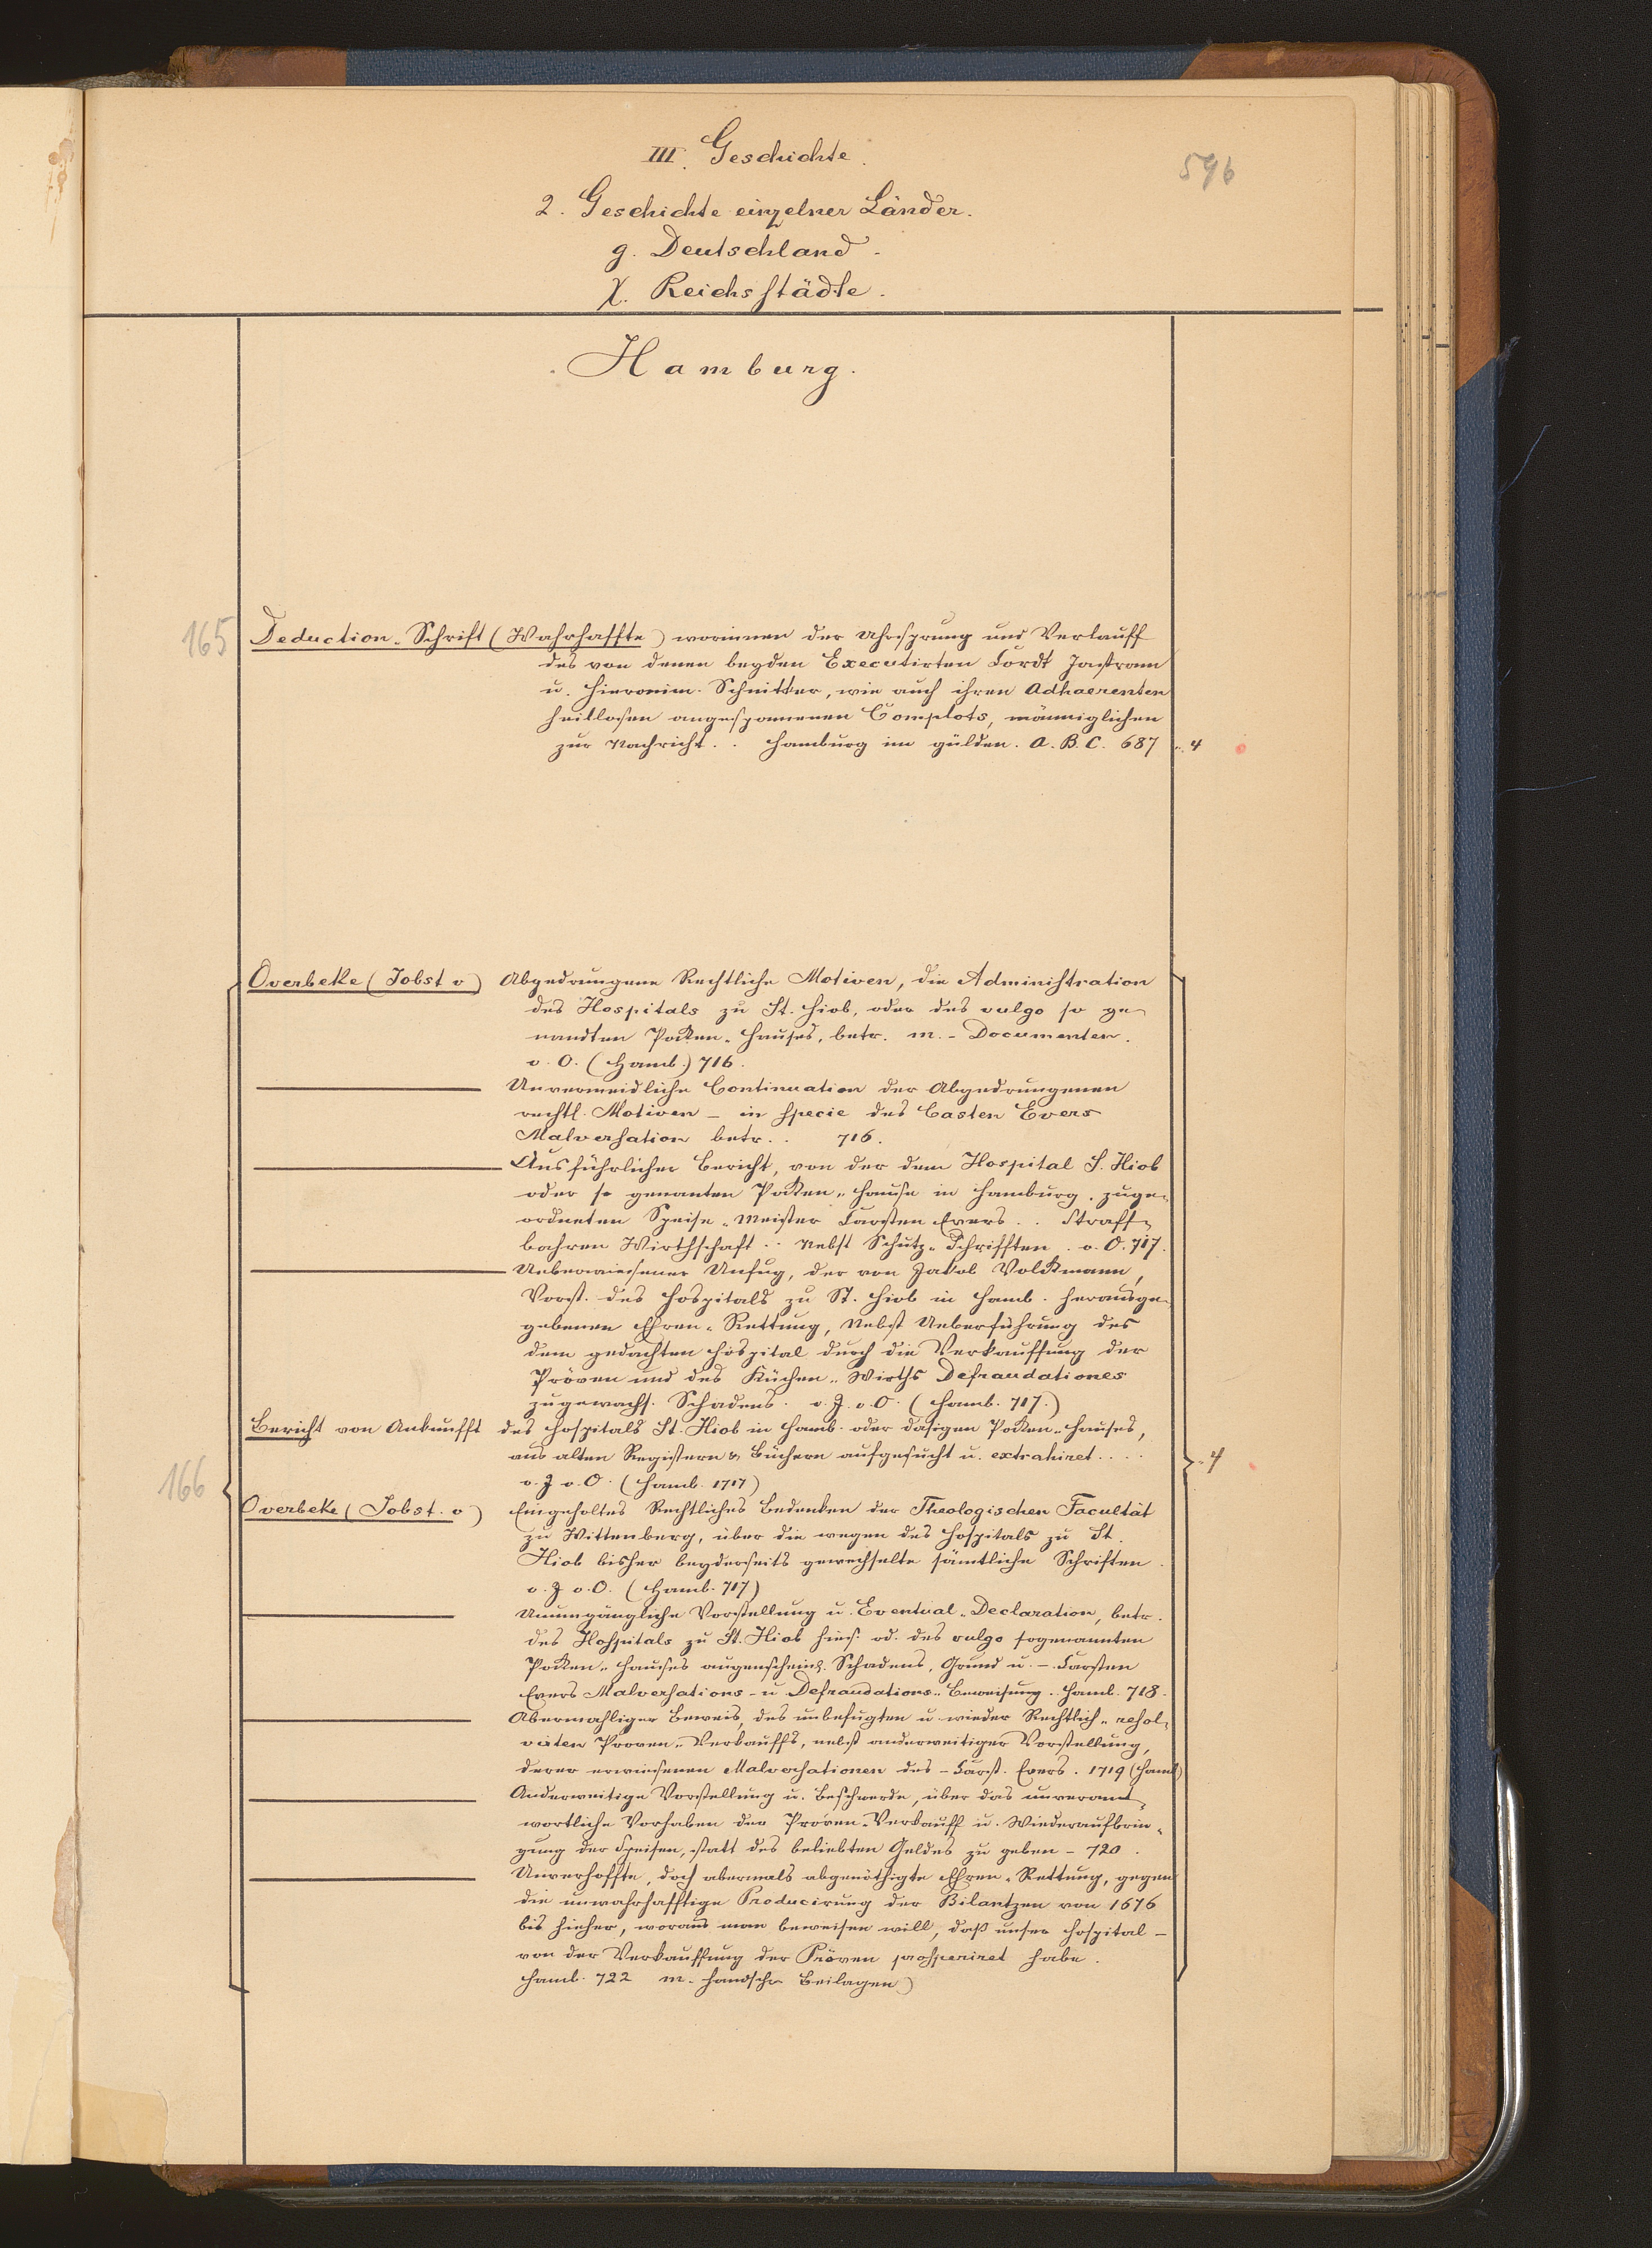 III. Geschichte.
596
2. Geschichte einzelner Länder.
g. Deutschland.
χ. Reichsstädte.
Hamburg.
165
Deduction-Schrift (Wahrhaffte) worinnen der Uhrsprung und Verlauff
des von denen beyden Executirten Cordt Jastram
u. Hieronim. Schnitker, wie auch ihren Adhaerenten
heillosen angesponnenen Complots, männiglichen
zur Nachricht.. Hamburg im gülden. A.B.C. 687 .. 4
Overbeke (Jobst v) Abgedrungene Rechtliche Motiven, die Administration
des Hospitals zu St. Hiob, oder des vulgo so ge-
nandten Pocken-Hauses, betr. m. - Documenten.
o. O. (Hamb.) 716.
Unvermeidliche Continuation der Abgedrungenen
rechtl. Motiven - in specie des Casten Evers
Malversation betr. . 716.
Ausführlicher Bericht, von der dem Hospital S. Hiob
oder so genanten Pocken-Hause in Hamburg. zuge-
ordneten Speise-Meister Carsten Evers . . Straff-
bahren Wirthschaft . . Nebst Schutz-Schrifften . o. O. 717.
Ueberwiesener Unfug, der von Jakob Volckmann,
Vorst. des Hospitals zu St. Hiob in Hamb. herausge-
gebenen Ehren-Rettung, Nebst Ueberführung des
dem gedachten Hospital durch die Verkauffung der
Pröven und des Küchen-Wirths Defraudationes
zugewachs. Schadens. o. J. o. O. (Hamb. 717.)
Bericht von Ankunfft des Hospitals St. Hiob in Hamb. oder dasigen Pocken-Hauses,
aus alten Registern & Büchern aufgesucht u. extrahiret . . . .
.. 4
166
o. J. o. O. (Hamb. 1717)
Overbeke (Jobst. v) Eingeholtes Rechtliches Bedenken der Theologischen Facultät
zu Wittenberg, über die wegen des Hospitals zu St.
Hiob bisher beyderseits gewechselte sämtliche Schriften.
o. J. o. O. (Hamb. 717)
Unumgängliche Vorstellung u. Eventual-Declaration, betr.
des Hospitals zu St. Hiob hies. od. des vulgo sogenannten
Pocken-Hauses augenscheinl. Schadens, Grund u. - Carsten
Evers Malversations- u Defraudations-Beweisung. Hamb. 718.
Abermahliger Beweis, des unbefugten u wieder Rechtlich-resol-
virten Proven-Verkauffs, nebst anderweitiger Vorstellung,
derer erwiesenen Malversationen des - Carst. Evers. 1719 (Hamb)
Anderweitige Vorstellung u. Beschwerde, über das unverant-
wortliche Vorhaben der Proven-Verkauff u. Wiederaufbrin-
gung der Speisen, statt des beliebten Geldes zu geben - 720.
Unverhoffte, doch abermals abgenöthigte Ehren-Rettung, gegen
die unwahrhafftige Producirung der Bilantzen von 1676
bis hieher, woraus man beweisen will, daß unser Hospital -
von der Verkauffung der Pröven prosperiret habe.
Hamb. 722 m. handschr Beilagen)